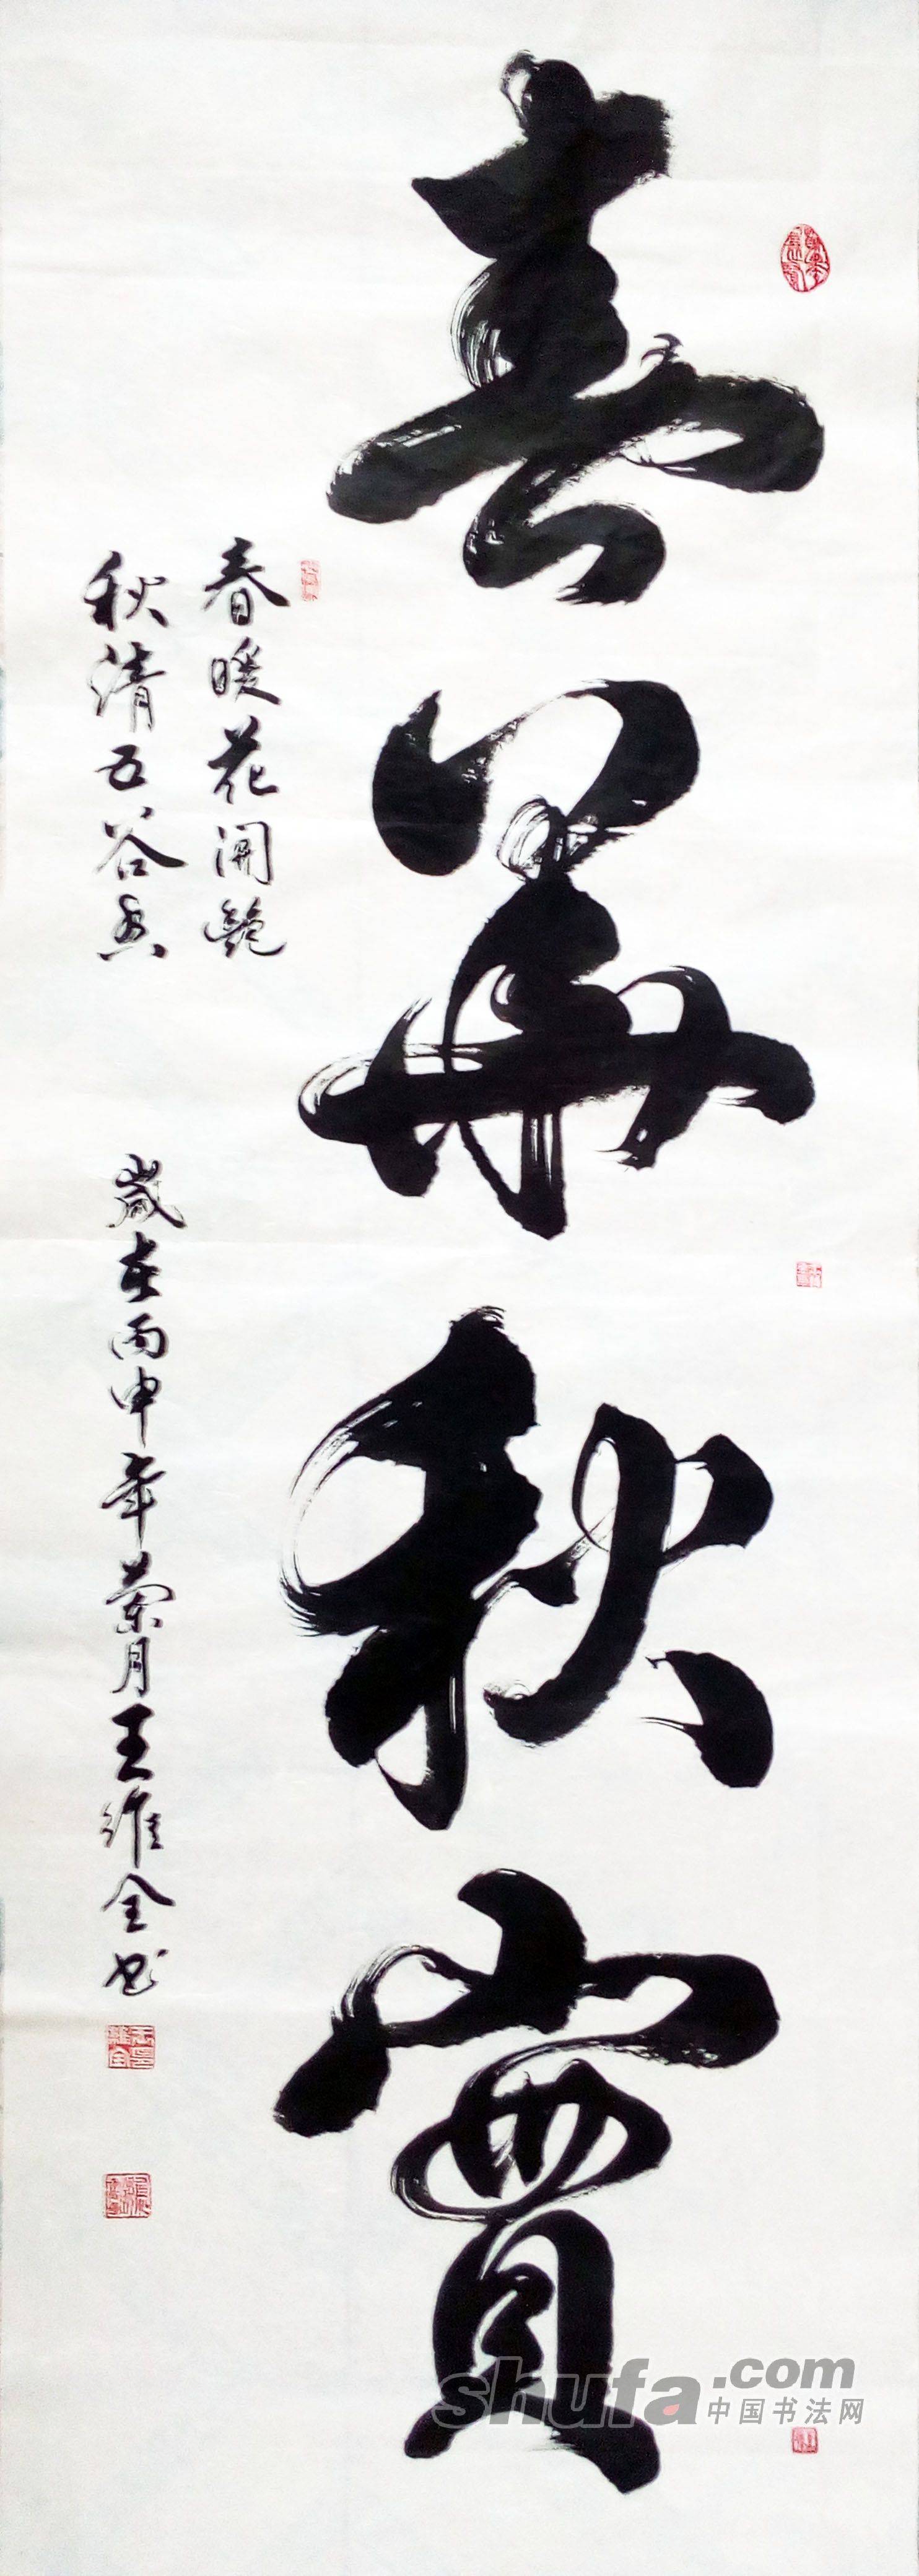 春華秋實
春暖花開艷
秋清五谷香
歲在丙申年菊月王維全书
shufa.com
中国书法网